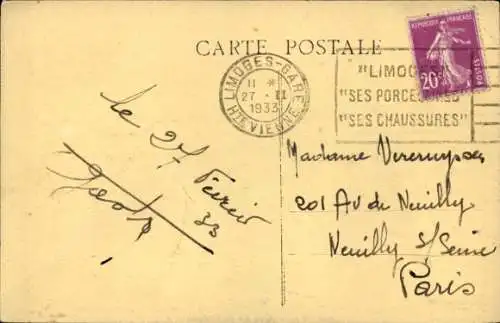 CARTE POSTALE
RÉPUBLIQUE FRANÇAISE
POSTES
20c
LIMOGES-GARE
11 *
27 - II
1933
HTE VIENNE
"LIMOGES
"SES PORCELAINES
"SES CHAUSSURES"
le 27 Février
33
Madame
201 Av de Neuilly
Neuilly s/Seine
Paris